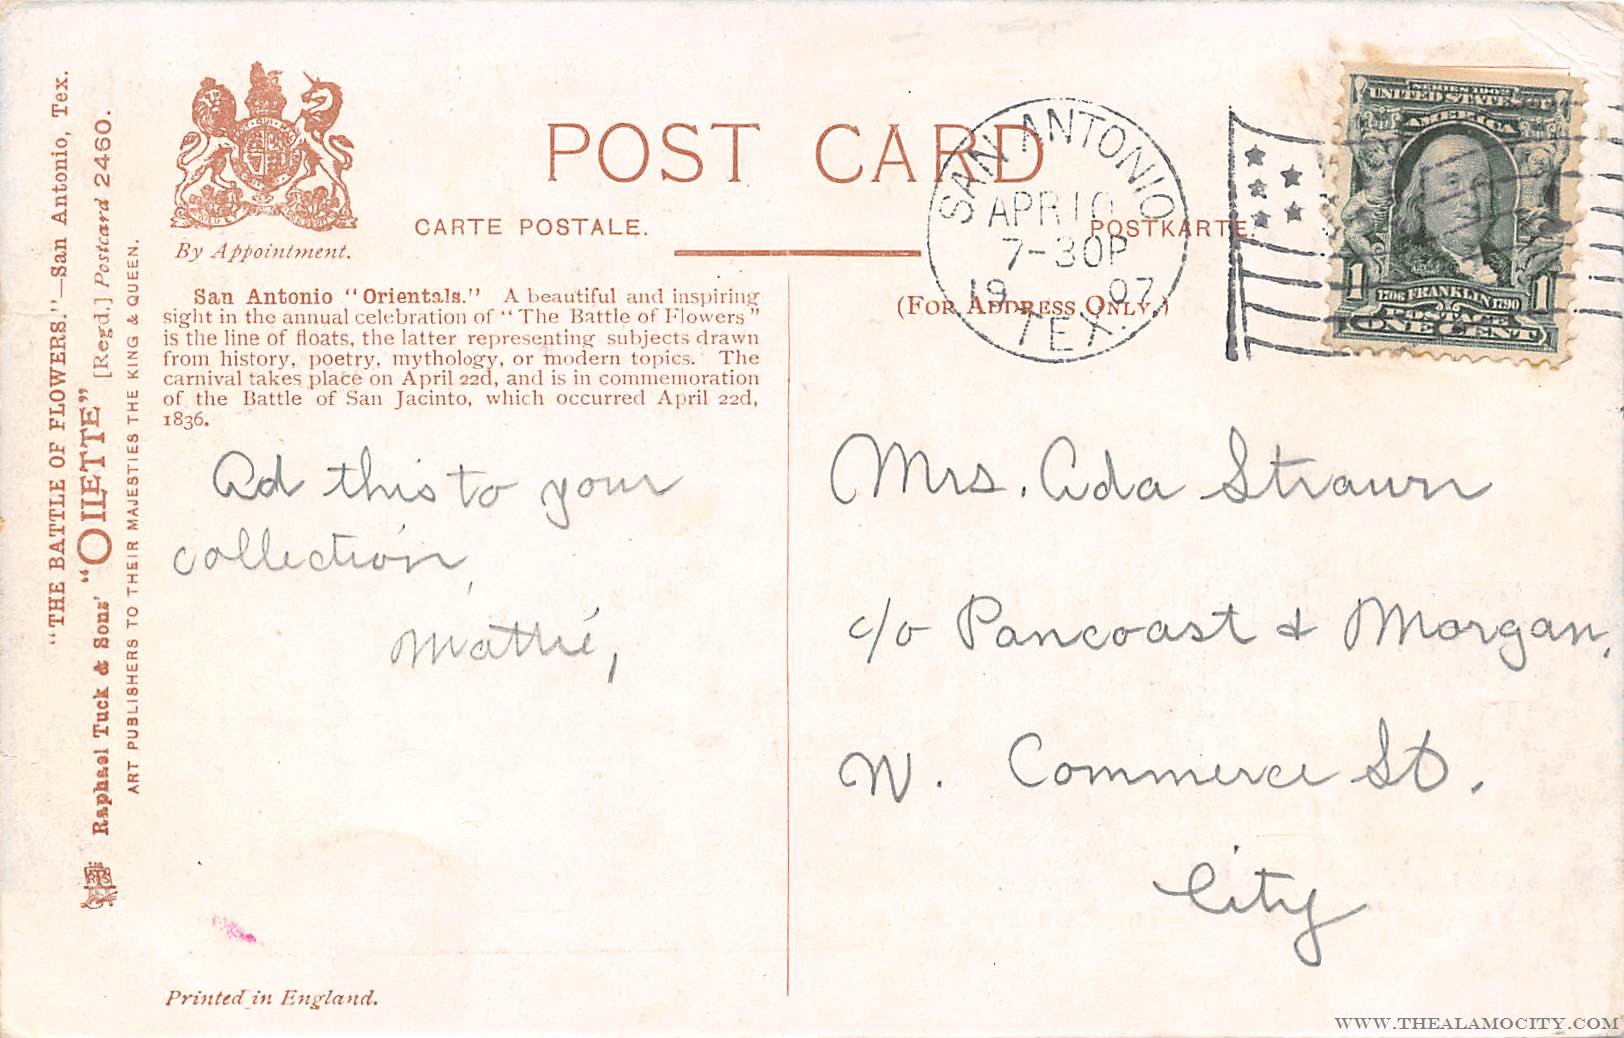 "THE BATTLE OF FLOWERS."—San Antonio, Tex.
Raphael Tuck & Sons' "OILETTE" [Regd.] Postcard 2460.
ART PUBLISHERS TO THEIR MAJESTIES THE KING & QUEEN.
By Appointment.
POST CARD
CARTE POSTALE.
POSTKARTE.
San Antonio "Orientals." A beautiful and inspiring
sight in the annual celebration of "The Battle of Flowers"
is the line of floats, the latter representing subjects drawn
from history, poetry, mythology, or modern topics. The
carnival takes place on April 22d, and is in commemoration
of the Battle of San Jacinto, which occurred April 22d,
1836.
Ad this to your
collection,
Mattie,
Printed in England.
(FOR ADDRESS ONLY.)
SAN ANTONIO
APR 10
7-30P
1907
TEX.
UNITED STATES OF
AMERICA
1706 FRANKLIN 1790
1 1
POSTAGE
ONE CENT
Mrs. Ada Strawn
c/o Pancoast & Morgan,
W. Commerce St.
City
WWW.THEALAMOCITY.COM